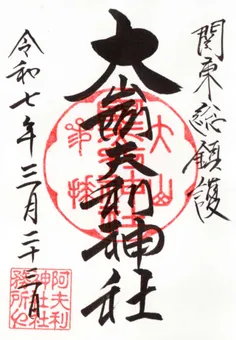 関東総鎮護
大山阿夫利神社
令和七年三月二十三日
阿夫利
神社社
務所之印